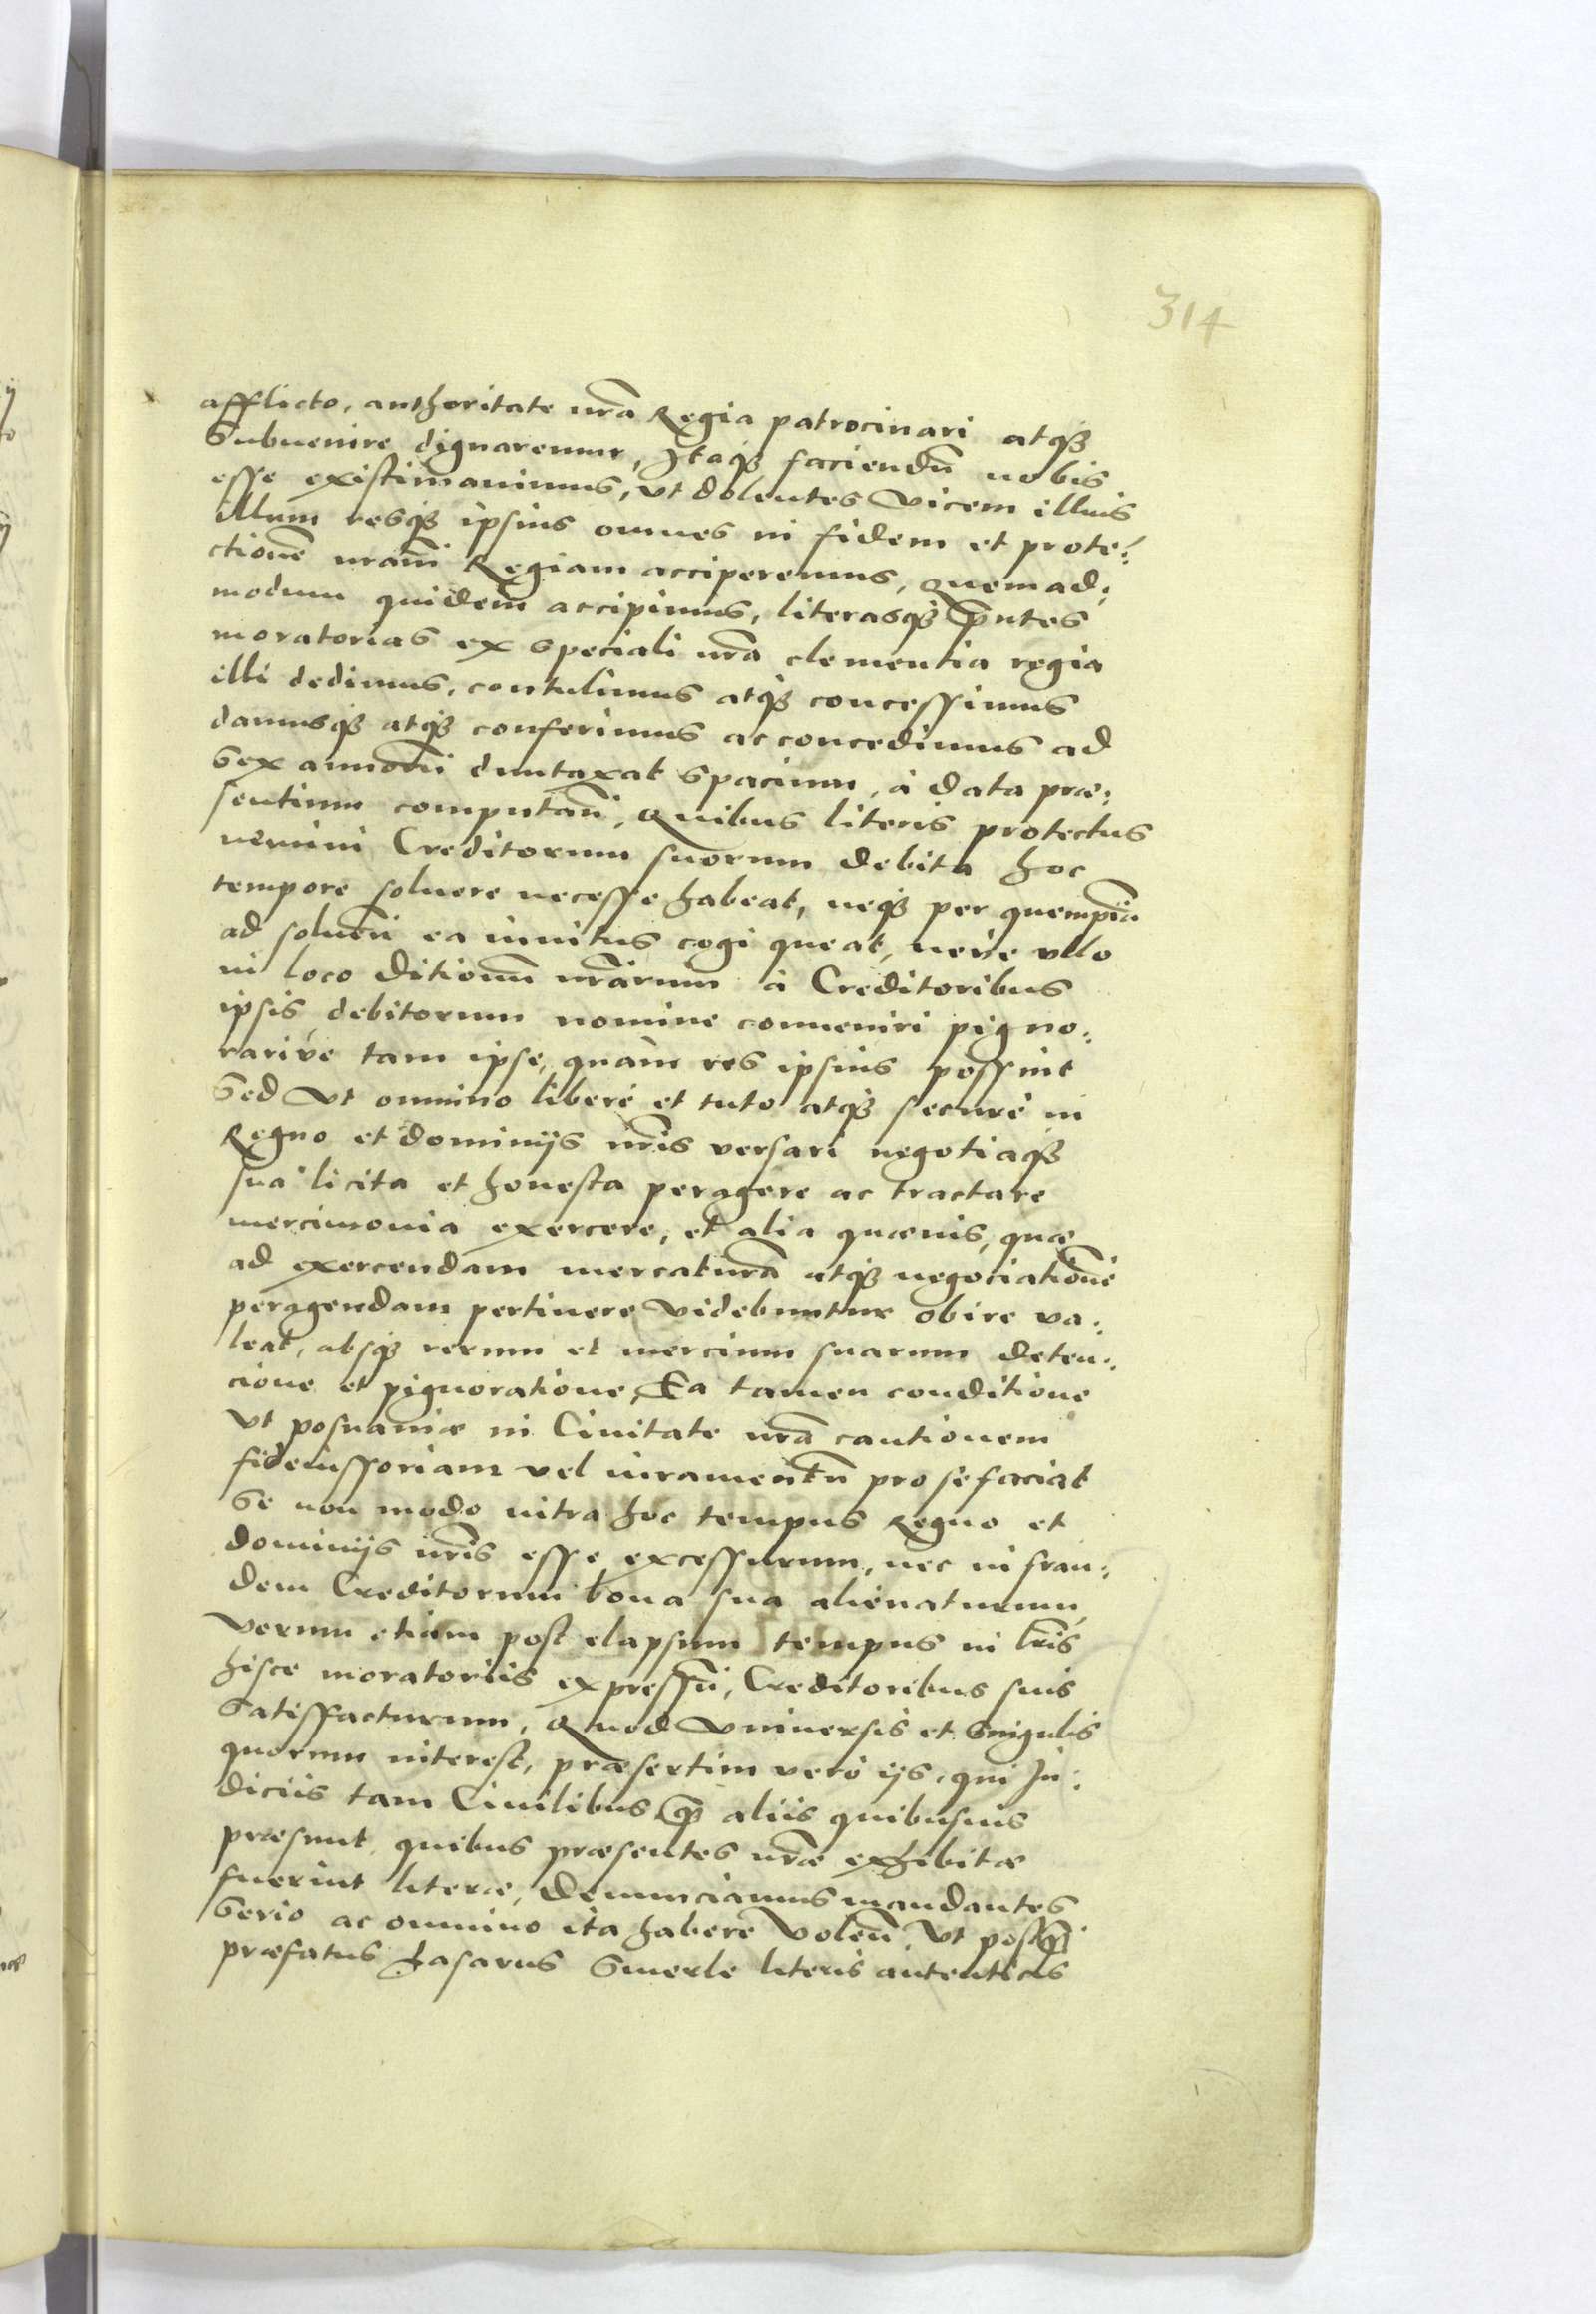 314
afflicto, authoritate nrã Regia patrocinari atqȝ
Subuenire dignaremur, Itaqȝ faciendũ nobis
esse existimauimus, vt dolentes vicem illius
illum resqȝ ipsius omnes in fidem et prote:
ctionẽ nram̃ Regiam acciperemus, quemad:
modum quidem accipimus, literasqȝ p̃ntes
moratorias ex speciali nrã clementia regia
illi dedimus, contulimus atqȝ concessimus
damusqȝ atqȝ conferimus ac concedimus ad
Sex annorũ duntaxat Spacium, à data præ:
sentium computan̄, Quibus literis protectus
nemini Creditorum suorum debita hoc
tempore soluere necesse habeat, neqȝ per quempiã
ad soluen̄ ea inuitus cogi queat, neue vllo
in loco Ditionũ nrãrum à Creditoribus
ipsis, debitorum nomine conueniri pigno:
rariue tam ipse, quàm res ipsius possint
Sed vt omnino liberè et tuto atqȝ securè in
Regno et dominijs nr̃is versari negotiaqȝ
sua licita et honesta peragere ac tractare
mercimonia exercere, et alia quæuis, quæ
ad exercendam mercaturã atqȝ negociationẽ
peragendam pertinere videbuntur obire va:
leat, absqȝ rerum et mercium suarum deten:
cione et pignoratione, Ea tamen conditione
Vt posnaniæ in Ciuitate nrã cautionem
fideiussoriam vel iuramentũ pro se faciat
Se non modo intra hoc tempus Regno et
dominijs nr̃is esse excessurum, nec in frau:
dem Creditorum bona sua alienaturum,
Verum etiam post elapsum tempus in lr̃is
hisce moratoriis expressũ, Creditoribus suis
Satisfacturum, Quod Vniuersis et Singulis
quorum interest, præsertim verò ijs, qui Ju:
diciis tam Ciuilibus q̃ȝ aliis quibusuis
præsunt, quibus præsentes nræ̃ exhibitæ
fuerint literæ, Denunciamus mandantes
Serio ac omnino ita habere volen̄, Vt postq̃ȝ
præfatus Lasarus Smerle literis autenticis